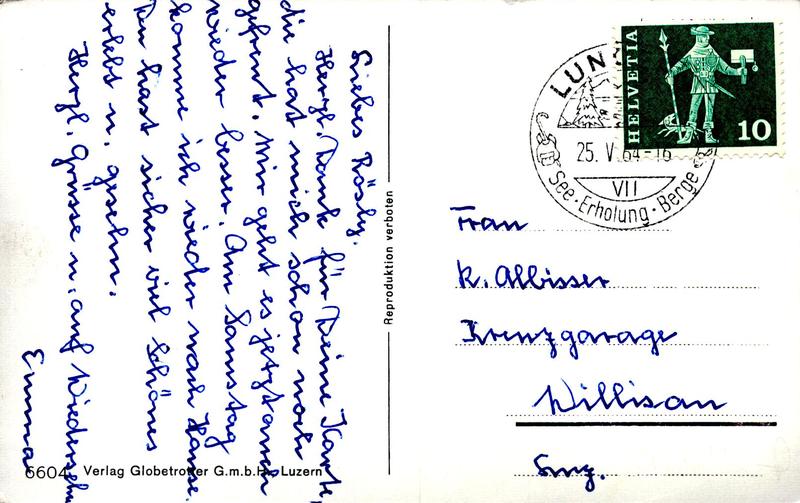 Liebes Rösly.
Herzl. Dank für Deine Karte,
die hat mich schon noch
gefreut. Mir geht es jetzt auch
wieder besser. Am Samstag
komme ich wieder nach Hause.
Du hast sicher viel schönes
erlebt u. gesehn.
Herzl. Grüsse u. auf Wiedersehn
Emma
6604 Verlag Globetrotter G.m.b.H., Luzern
Reproduktion verboten
HELVETIA
10
25. V. 64-16
VII
See·Erholung·Berge
Frau
K. Albisser
Kreuzgarage
Willisau